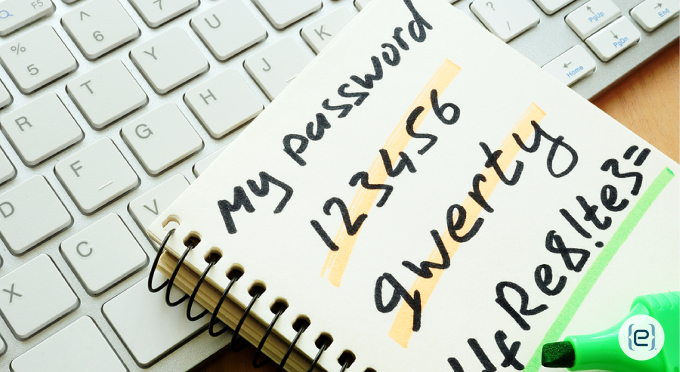 My password
123456
qwerty
Re8!te3=
F5
F6
^
6
&
7
%
5
R
T
Y
U
F
G
H
J
K
D
V
C
X
PgUp
PgDn
Home
End
{e}